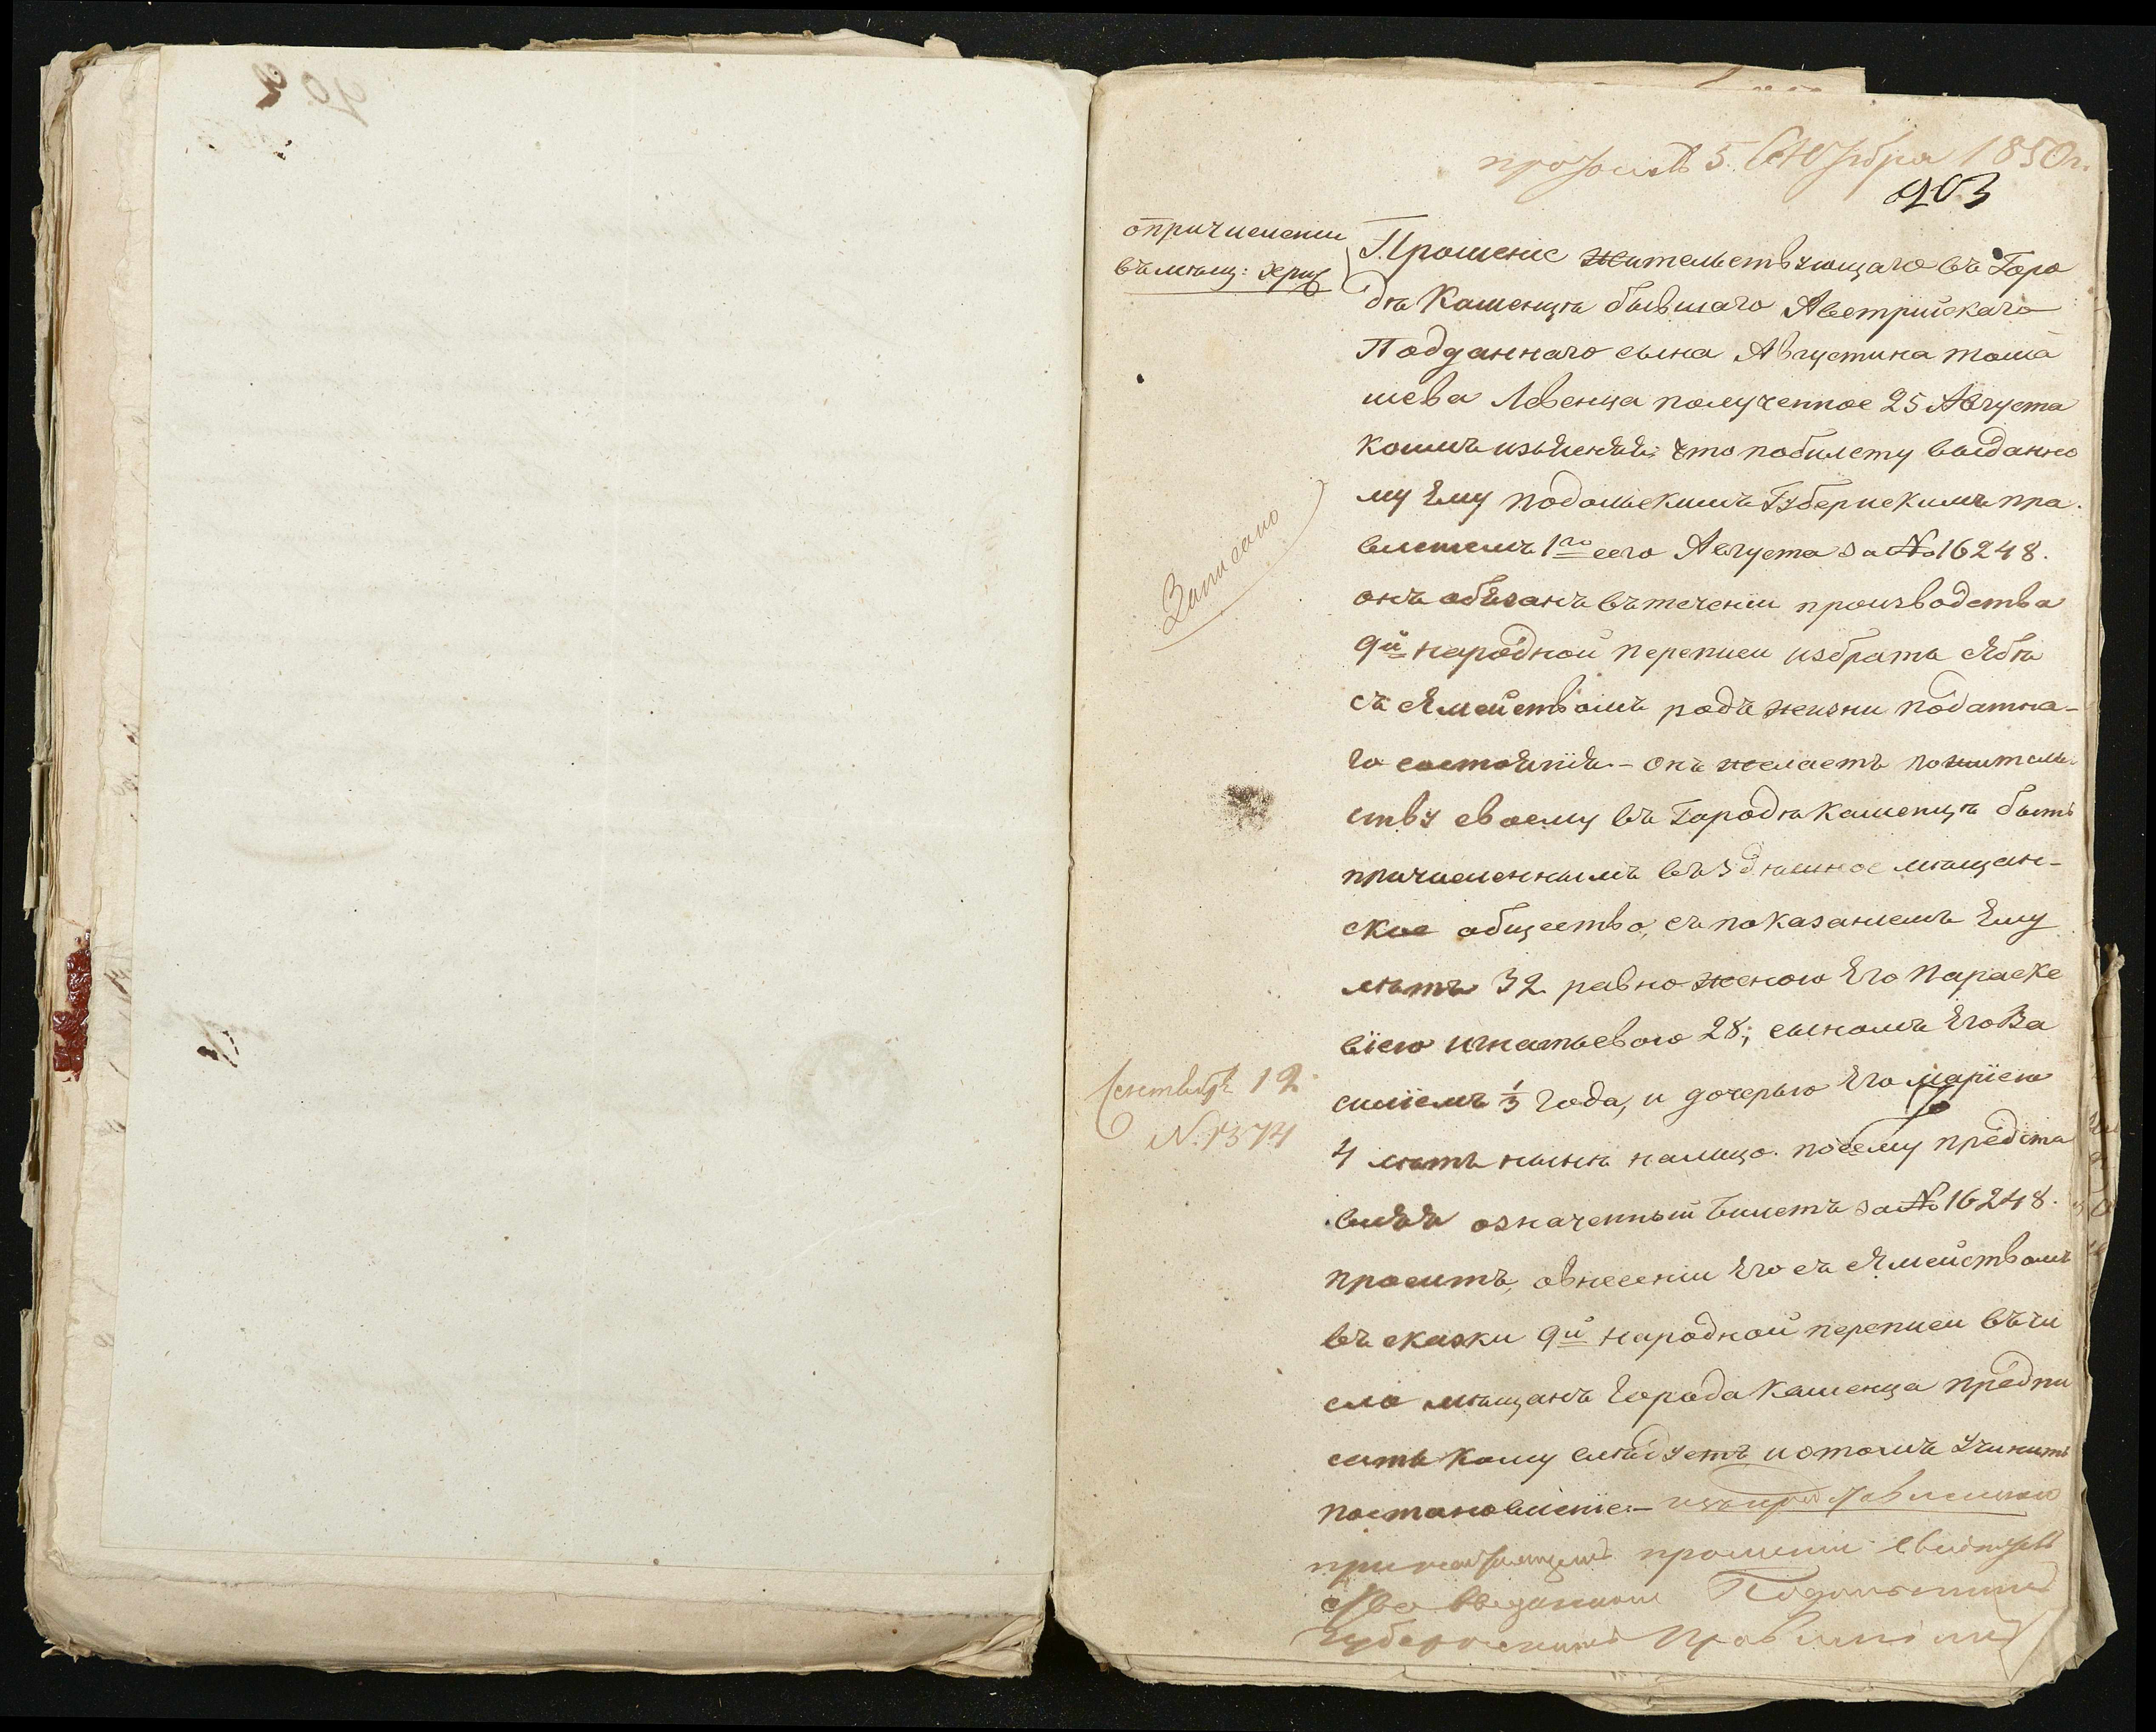 5. Сентября 1850 г.
903
о причислении
въ мѣщ: херщ
Прошение жительствующаго въ Горо
дѣ Каменцѣ бывшаго Австрийскаго
Подданнаго сына Августина тома
шева Левенца полученное 25 Августа
коимъ изъясняя; что по билету выданно
му Ему Подольскимъ Губернскимъ пра.
влениемъ 1го сего Августа за № 16248.
онъ обязанъ въ течении производства
9й народной переписи избрать себѣ
съ Ямействомъ родъ жизни податна-
го состоянія. - онъ желаетъ по житель-
ству своему въ Городѣ Каменцѣ быть
причисленнымъ въ здѣшное мѣщан-
ское общество, съ показаниемъ Ему
лѣтъ 32 равно женою Его Параске
віею игнатьевою 28; сыномъ Его Ва
силіемъ 1/3 года, и дочерью Его Маріею
4 лѣтъ нынѣ налицо. посему предста
вляя означенный билетъ за № 16248.
проситъ, о внесении Его съ Ямействомъ
въ сказки 9й народной переписи въ чи
сло мѣщанъ Города Каменца предпи
сать кому слѣдуетъ, и о томъ учинить
постановленіе. -
при прошении свидѣтель
ство выданное Подольскимъ
Губернскимъ Правленіемъ
Записано
Сентября 12
N. 1374